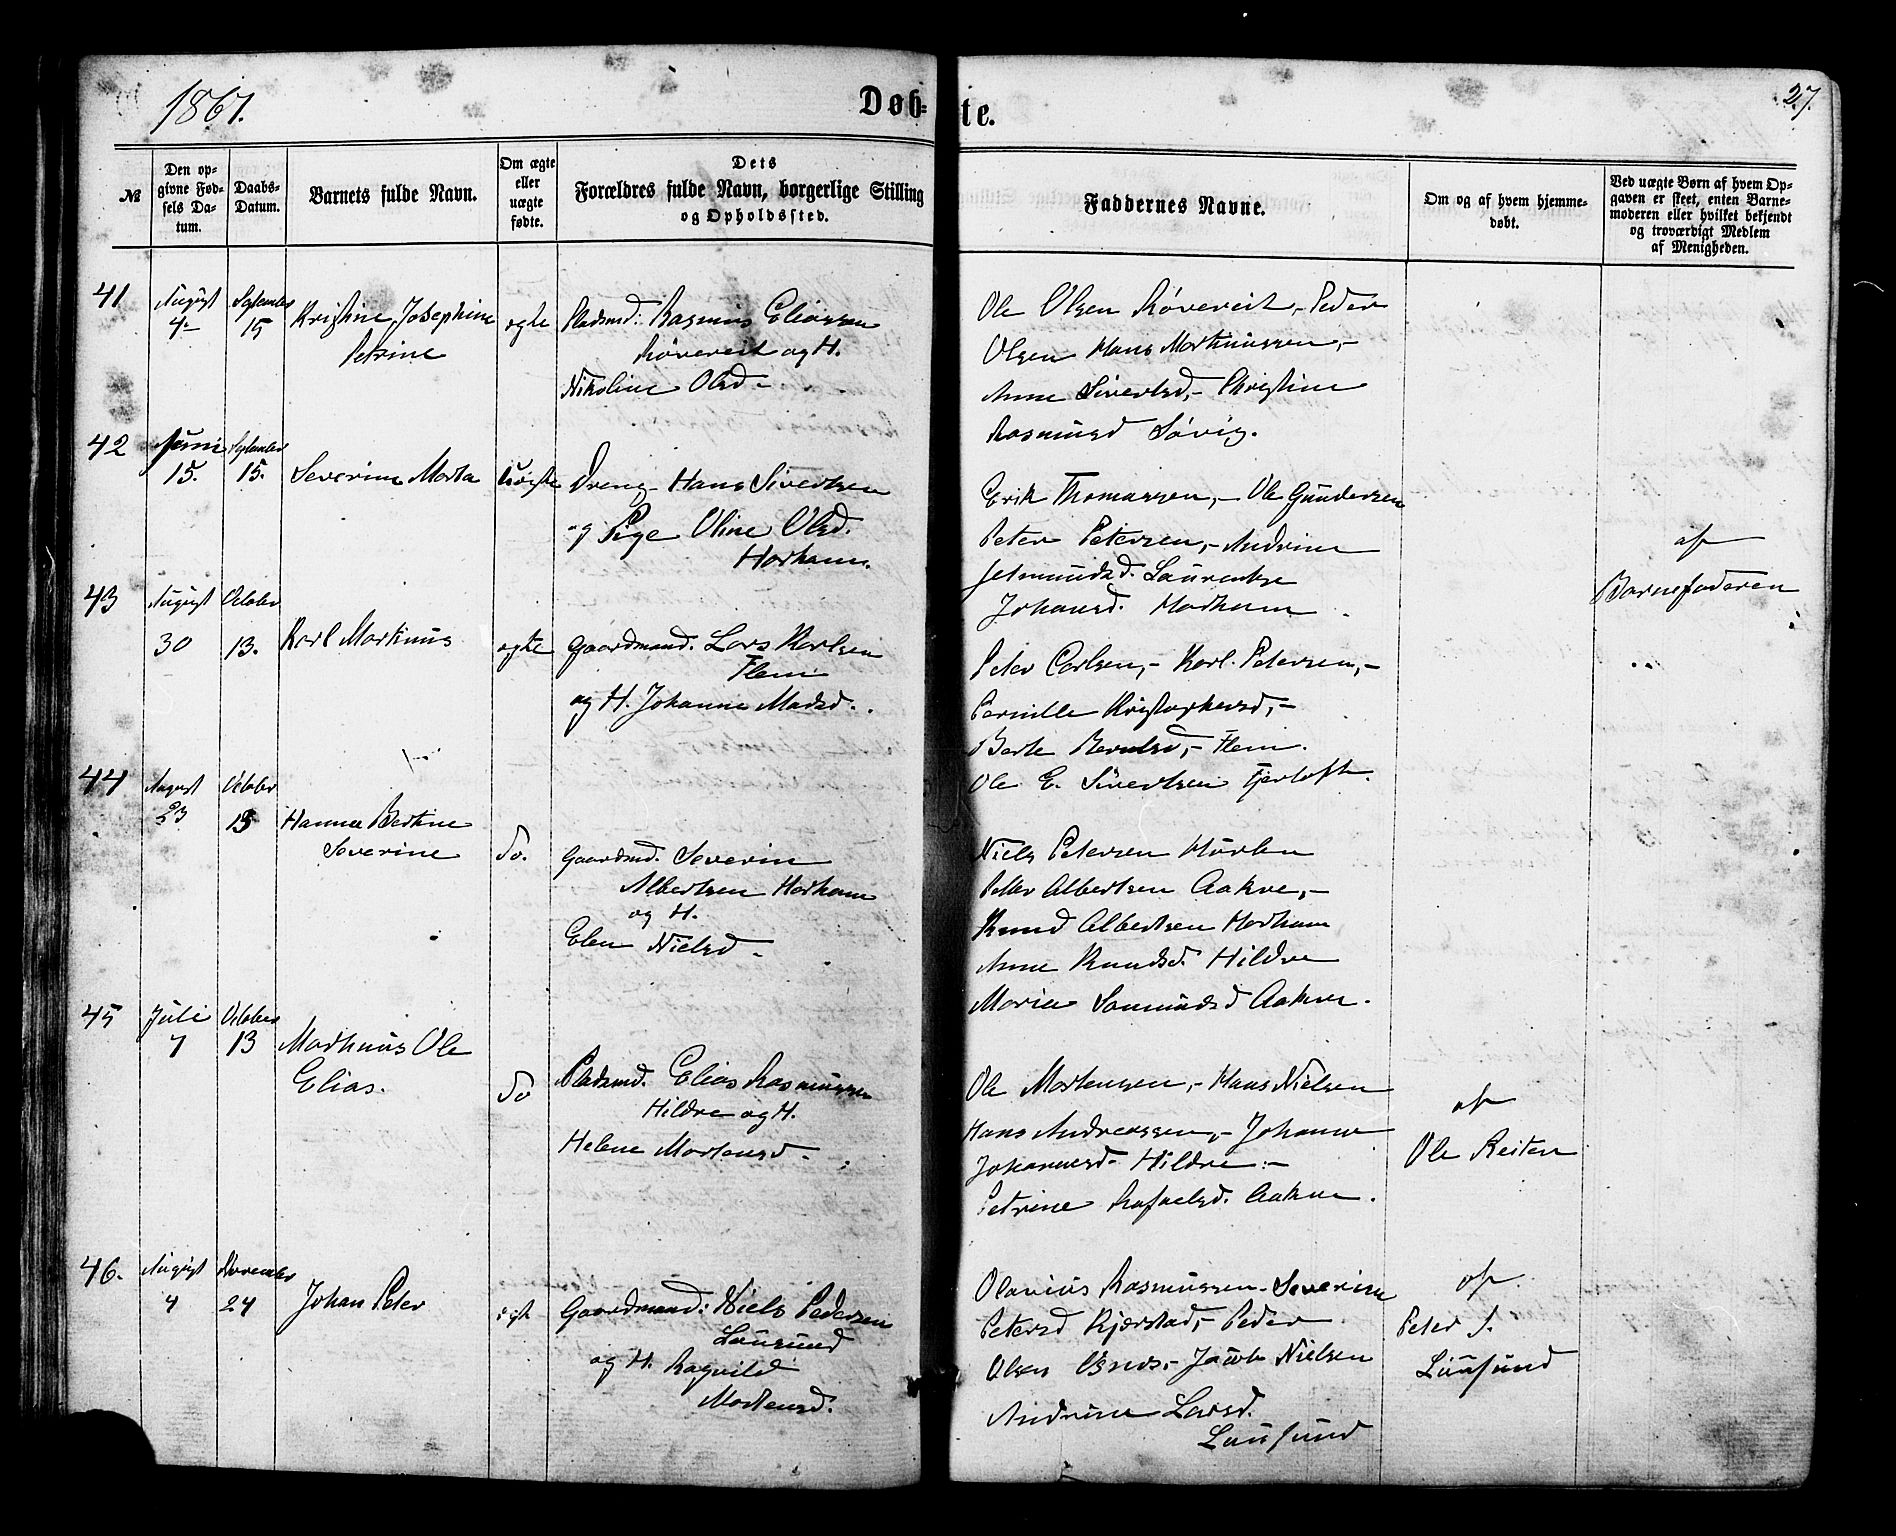 1867.
Døb-
te.
27.
№
Den op-
givne Fød-
sels Da-
tum.
Daabs-
Datum.
Barnets fulde Navn.
Om ægte
eller
uægte
fødte.
Dets
Forældres fulde Navn, borgerlige Stilling
og Opholdssted.
Faddernes Navne.
Om og af hvem hjemme-
døbt.
Ved uægte Børn af hvem Op-
gaven er skeet, enten Barne-
moderen eller hvilket bekjendt
og troværdigt Medlem
af Menigheden.
41
August
4
September
15
Kristine Josephine
Petrine
ægte
Pladsmd: Rasmus Eliassen
Røvereit og H.
Nikoline Olsd
Ole Olsen Røvereit, Peder
Olsen Hans Martinussen,
Anne Sivertsd, Christine
Rasmusd Søvig.
42
Juni
15.
September
15.
Severine Marta
Uægte
Dreng Hans Sivertsen
og Pige Oline Olsd.
Harham.
Erik Thomassen, Ole Gundersen
Peter Petersen, Andrine
Jetmundsd. Laurentse
Johansd. Harham
af
Barnefaderen
43
August
30
October
13.
Karl Martinus
ægte
Gaardmand. Lars Karlsen
Flem
og H. Johanne Madsd.
Peter Carlsen, Karl Petersen,
Pernille Kristophersd,
Berte Berntsd, Flem.
Ole E. Sivertsen Fjørtoft.
44
August
23
October
13
Hanna Bertine
Severine
do.
Gaardmd. Severin
Albertsen Harham
og H.
Elen Nielsd
Niels Petersen Hurlen
Peter Albertsen Aakre,
Knud Albertsen Harham
Anne Knudsd. Hildre
Maria Samundsd Aakre.
45
Juli
7
October
13
Martinus Ole
Elias.
do
Pladsmd. Elias Rasmussen
Hildre og H.
Helene Mortensd
Ole Mortensen, Hans Nielsen
Hans Andreassen, Johanne
Johannesd Hildre
Petrine Rafaelsd. Aakre.
af
Ole Reiten
46.
August
4
November
24
Johan Peter
ægt
Gaardmand: Niels Pedersen
Lausund
og H. Ragnild
Mortensd.
Olavius Rasmussen Severine
Petersd Kjærstad, Peder
Olsen Jacob Nielsen
Andrine Larsd.
Lausund
af
Peter J.
Lausund